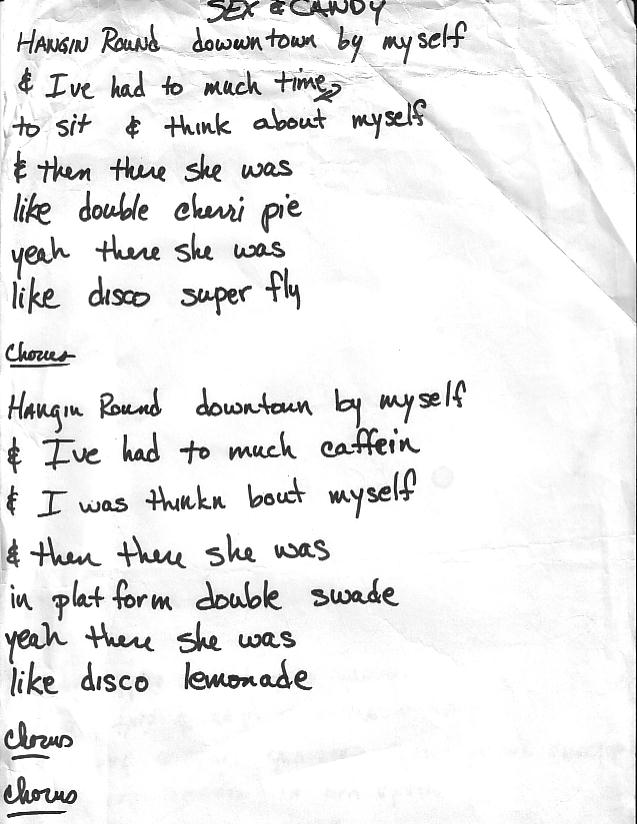 SEX & CANDY
HANGIN ROUND dowwntown by myself
& I've had to much time
to sit & think about myself
& then there she was
like double cherri pie
yeah there she was
like disco super fly
Chorus
HANgin Round downtown by myself
& I've had to much caffein
& I was thinkn bout myself
& then there she was
in platform double swade
yeah there she was
like disco lemonade
Chorus
Chorus